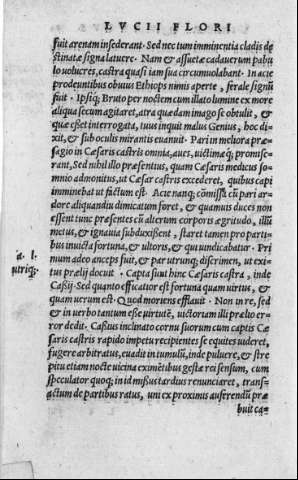 LVCII FLORI
fuit arenam insederant. Sed nec tum imminentia cladis de
stinatæ signa latuere. Nam & assuetæ cadauerum pabu
lo uolucres, castra quasi iam sua circumuolabant. In acie
prodeuntibus obuius Ethiops nimis aperte, ferale signũ
fuit. Ipsiq; Bruto per noctem cum illato lumine ex more
aliqua secum agitaret, atra quædam imago se obtulit, &
quæ esset interrogata, tuus inquit malus Genius, hoc di-
xit, & sub oculis mirantis euanuit. Pari in meliora præ-
sagio in Cæsaris castris omnia, aues, uictimæq; promise-
rant. Sed nihil illo præsentius, quam Cæsaris medicus so-
mnio admonitus, ut Cæsar castris excederet, quibus capi
imminebat ut factum est. Acie nanq; cõmissa cũ pari ar-
dore aliquandiu dimicatum foret, & quamuis duces non
essent tunc præsentes cũ alterum corporis ægritudo, illũ
metus, & ignauia subduxissent, staret tamen pro parti-
bus inuicta fortuna, & ultoris, & qui uindicabatur. Pri
mum adeo anceps fuit, & par utrunq; discrimen, ut exi
tus prælij docuit. Capta siuut hinc Cæsaris castra, inde
Cassij. Sed quanto efficatior est fortuna quam uirtus, &
quam uerum est. Quod moriens efflauit. Non in re, sed
& in uerbo tantum esse uirtutẽ, uictoriam illi prælio er-
ror dedit. Cassius inclinato cornu suorum cum captis Cæ
saris castris rapido impetu recipientes se equites uideret,
fugere arbitratus, euadit in tumulũ, inde puluere, & stre
pitu etiam nocte uicina eximẽtibus gestæ rei sensum, cum
speculator quoq; in id missus tardius renunciaret, trans-
actum de partibus ratus, uni ex proximis auferendũ præ
buit ca=
a. l.
utriq;